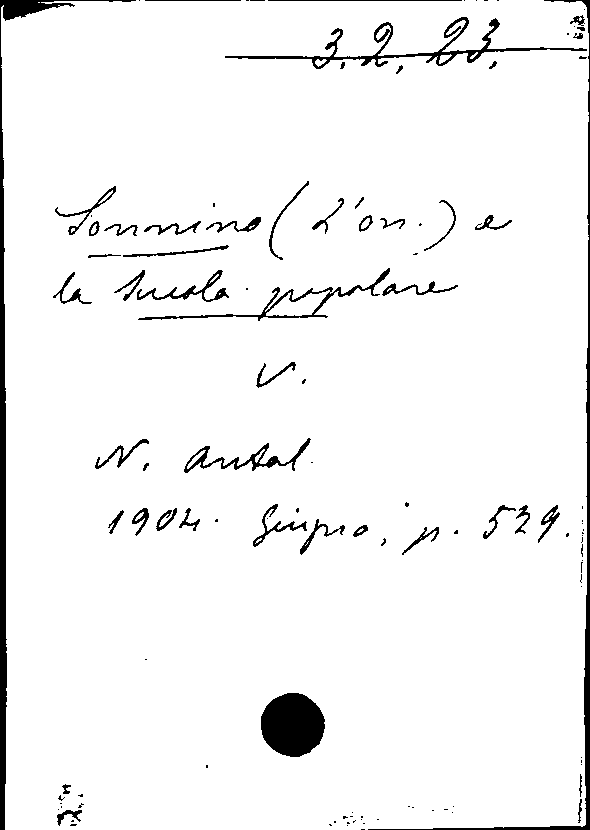 3.2.23.
Sonnino (L'on.) e
la Scuola popolare
V.
N. Antol.
1904. Giugno, p. 529.